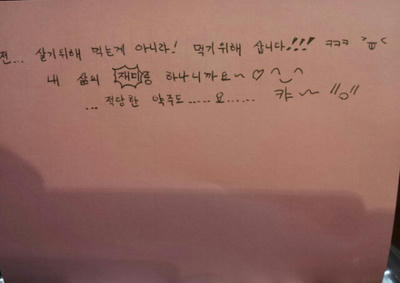 전... 살기위해 먹는게 아니라! 먹기위해 삽니다!!! ㅋㅋㅋ >ㅠ<
내 삶의 재미중 하나니까요~ ♡ ^_^
... 적당한 약주도..... 요...... 캬~ "o"